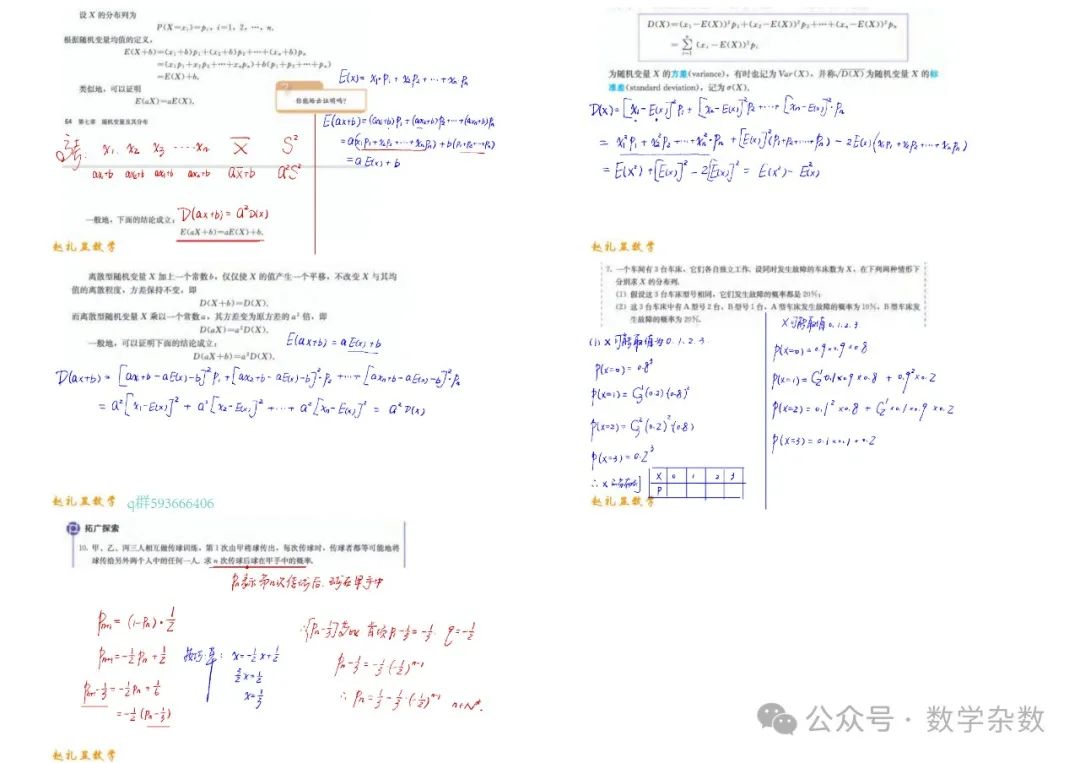 设 X 的分布列为
P(X=xᵢ)=pᵢ, i=1, 2, …, n.
根据随机变量均值的定义,
E(X+b)=(x₁+b)p₁+(x₂+b)p₂+⋯+(xₙ+b)pₙ
=(x₁p₁+x₂p₂+⋯+xₙpₙ)+b(p₁+p₂+⋯+pₙ)
=E(X)+b.
类似地,可以证明
E(aX)=aE(X).
你能给出证明吗?
E(x)= x₁·p₁+x₂p₂+⋯+xₙpₙ
E(ax+b)=(ax₁+b)p₁+(ax₂+b)p₂⋯+(axₙ+b)pₙ
=a(x₁p₁+x₂p₂+⋯+xₙpₙ)+b(p₁+p₂⋯+pₙ)
=aE(x)+b
64 第七章 随机变量及其分布
x₁ x₂ x₃ ⋯⋯xₙ x̄ S²
ax₁+b ax₂+b ax₃+b axₙ+b ax̄+b a²S²
D(ax+b)=a²D(x)
一般地,下面的结论成立:
E(aX+b)=aE(X)+b.
赵礼显数学
D(X)=(x₁−E(X))²p₁+(x₂−E(X))²p₂+⋯+(xₙ−E(X))²pₙ
=∑ᵢ₌₁ⁿ(xᵢ−E(X))²pᵢ
为随机变量 X 的方差(variance),有时也记为 Var(X),并称√D(X)为随机变量 X 的标
准差(standard deviation),记为 σ(X).
D(x)=[x₁−E(x)]²p₁+[x₂−E(x)]²p₂+⋯+[xₙ−E(x)]²·pₙ
=x₁²p₁+x₂²p₂+⋯xₙ²·pₙ+[E(x)]²(p₁+p₂+⋯+pₙ)−2E(x)(x₁p₁+x₂p₂+⋯+xₙpₙ)
=E(x²)+[E(x)]²−2[E(x)]²=E(x²)−E²(x)
赵礼显数学
离散型随机变量 X 加上一个常数 b,仅仅使 X 的值产生一个平移,不改变 X 与其均
值的离散程度,方差保持不变,即
D(X+b)=D(X).
而离散型随机变量 X 乘以一个常数 a,其方差变为原方差的 a² 倍,即
D(aX)=a²D(X).
一般地,可以证明下面的结论成立:
E(ax+b)=aE(x)+b
D(aX+b)=a²D(X).
D(ax+b)=[ax₁+b−aE(x)−b]²p₁+[ax₂+b−aE(x)−b]²·p₂⋯+[axₙ+b−aE(x)−b]²·pₙ
=a²[x₁−E(x)]²+a²[x₂−E(x)]²+⋯+a²[xₙ−E(x)]²=a²D(x)
赵礼显数学 q群593666406
7. 一个车间有3台车床,它们各自独立工作. 设同时发生故障的车床数为 X,在下列两种情形下
分别求 X 的分布列.
(1) 假设这3台车床型号相同,它们发生故障的概率都是20%;
(2) 这3台车床中有 A 型号2台,B 型号1台,A 型车床发生故障的概率为10%,B 型车床发
生故障的概率为20%.
(1) X可能取值为0.1.2.3
P(x=0)=0.8³
P(x=1)=C₃¹(0.2)(0.8)²
P(x=2)=C₃²(0.2)²(0.8)
P(x=3)=0.2³
X 0 1 2 3
P
X可能取值0.1.2.3
P(x=0)=0.9×0.9×0.8
P(x=1)=C₂¹0.1×0.9×0.8+0.9²×0.2
P(x=2)=0.1²×0.8+C₂¹×0.1×0.9×0.2
P(x=3)=0.1×0.1×0.2
赵礼显数学
拓广探索
10. 甲、乙、丙三人相互做传球训练,第1次由甲将球传出,每次传球时,传球者都等可能地将
球传给另外两个人中的任何一人. 求 n 次传球后球在甲手中的概率.
Pₙ表示第n次传球后.球在甲手中
Pₙ₊₁=(1−Pₙ)·1/2
Pₙ₊₁=−1/2Pₙ+1/2
Pₙ₊₁−1/3=−1/2Pₙ+1/6
=−1/2(Pₙ−1/3)
x=−1/2x+1/2
3/2x=1/2
x=1/3
∴{Pₙ−1/3}是等比 首项P₁−1/3=−1/3. q=−1/2
Pₙ−1/3=−1/3·(−1/2)ⁿ⁻¹
∴Pₙ=1/3−1/3·(−1/2)ⁿ⁻¹ n∈N*.
赵礼显数学
公众号·数学杂数